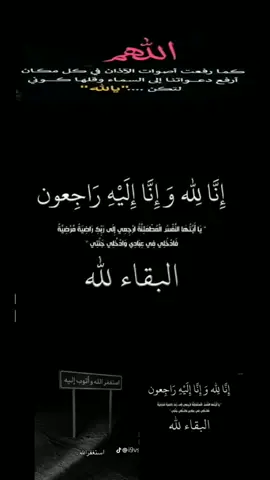 اللهم
كما رفعت أصوات الآذان في كل مكان
أرفع دعواتنا إلى السماء وقلها كوني
لتكن ...."يالله"
إِنَّا لِلَّه وَ إِنَّا إِلَيْهِ رَاجِعون
" يَا أَيَّتُهَا النَّفْسُ الْمُطْمَئِنَّةُ ارْجِعِي إِلَى رَبِّكِ رَاضِيَةً مَّرْضِيَّةً
فَادْخُلِي فِي عِبَادِي وَادْخُلِي جَنَّتِي "
البقاء لله
استغفر الله وأتوب إليه
استغفرالله
إِنَّا لِلَّه وَ إِنَّا إِلَيْهِ رَاجِعون
البقاء لله